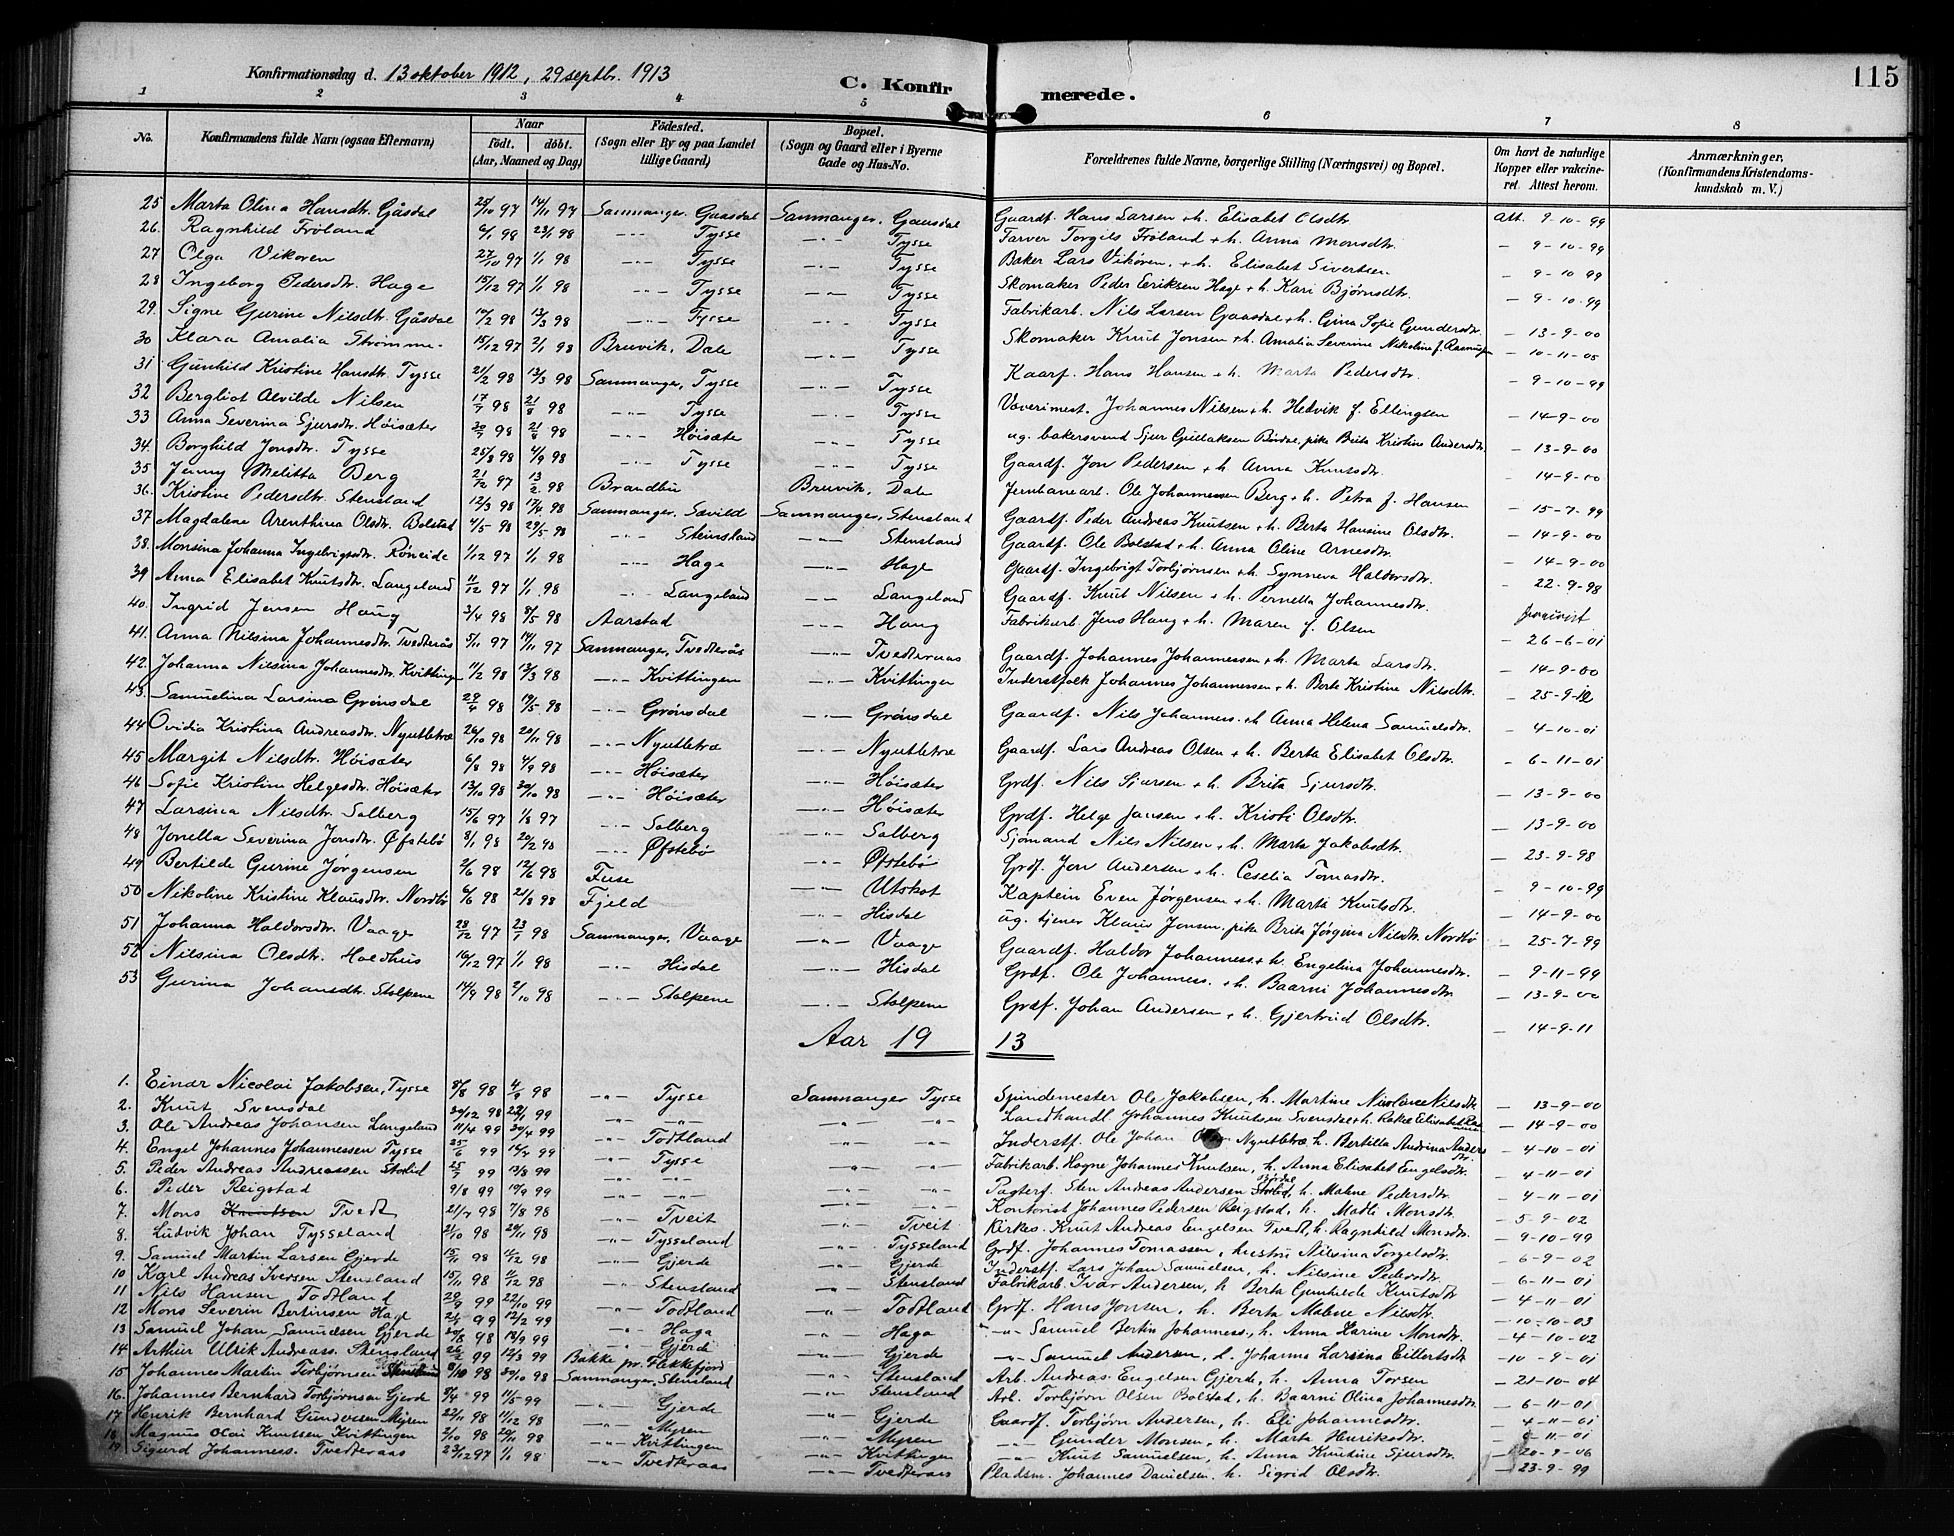 115
Konfirmationsdag d. 13 oktober 1912, 29 septbr. 1913
C. Konfirmerede.
1 2 3 4 5 6 7 8
No. | Konfirmandens fulde Navn (ogsaa Efternavn) | Naar födt. döbt. (Aar, Maaned og Dag) | Födested. (Sogn eller By og paa Landet tillige Gaard) | Bopæl. (Sogn og Gaard eller i Byerne Gade og Hus-No. | Forældrenes fulde Navne, borgerlige Stilling (Næringsvei) og Bopæl. | Om havt de naturlige Kopper eller vakcineret. Attest herom. | Anmærkninger. (Konfirmandens Kristendomskundskab m. V.)
25 Marta Olina Hansdtr. Gåsdal 25/10 97 14/11 97 Sammanger, Gaasdal Sammanger, Gaasdal Gaardf. Hans Larsen + h. Elisabet Olsdtr. Att. 9-10-99
26. Ragnhild Frøland 6/1 98 23/1 98 -"- Tysse -"- Tysse Farver Torgils Frøland + h. Anna Monsdtr. — 9-10-99
27 Olga Vikøren 27/10 97 1/1 98 -"- Tysse -"- Tysse Baker Lars Vikøren + h. Elisabet Sivertsen — 9-10-99
28 Ingeborg Pedersdtr. Hage 15/12 97 1/1 98 -"- Tysse -"- Tysse Skomaker Peder Eriksen Hage + h. Kari Bjørnsdtr. — 9-10-99
29. Signe Gurine Nilsdtr. Gåsdal 14/2 98 13/3 98 -"- Tysse -"- Tysse Fabrikarb. Nils Larsen Gaasdal + h. Gina Sofie Gundersdtr. — 13-9-00
30 Klara Amalia Strømme 15/12 97 2/1 98 Bruvik, Dale -"- Tysse Skomaker Knut Jonsen + h. Amalia Severine Nikoline f. Rasmussen — 10-11-05
31 Gunhild Kristine Hansdtr. Tysse 21/2 98 13/3 98 Sammanger, Tysse -"- Tysse Kaarf. Hans Hansen + h. Marta Pedersdtr. — 9-10-99
32 Bergliot Alvilde Nilsen 17/7 98 21/8 98 -"- Tysse -"- Tysse Væverimest. Johannes Nilsen + h. Hedvik f. Ellingsen — 14-9-00
33 Anna Severina Sjursdtr. Høisæter 20/7 98 21/8 98 -"- Høisæte -"- Tysse ug. bakersvend Sjur Gullaksen Børdal, pike Brita Kristine Andersdtr. — 13-9-00
34. Borghild Jonsdtr. Tysse 25/8 98 4/9 98 -"- Tysse -"- Tysse Gaardf. Jon Pedersen + h. Anna Knutsdtr. — 14-9-00
35 Jenny Melitta Berg 21/12 97 13/2 98 Brandbu Bruvik, Dale Jernbanearb. Ole Johannessen Berg + h. Petra f. Hansen — 15-7-99
36. Kristine Pedersdtr. Stensland 12/3 98 17/4 98 Sammanger, Sævild Sammanger, Stensland Gaardf. Peder Andreas Knutsen + h. Berta Hansine Olsdtr. — 14-9-00
37 Magdalene Arenthina Olsdtr. Bolstad 4/5 98 29/5 98 -"- Steinsland -"- Stensland Gaardf. Ole Bolstad + h. Anna Oline Arnesdtr. — 14-9-00
38. Monsina Johanna Ingebrigtsdtr. Røneide 1/12 97 1/1 98 -"- Hage -"- Hage Gaardf. Ingebrigt Torbjørnsen + h. Synneva Haldorsdtr. — 22-9-98
39 Anna Elisabet Knutsdtr. Langeland 11/12 97 1/1 98 -"- Langeland — Langeland Gaardf. Knut Nilsen + h. Pernella Johannesdtr.
40. Ingrid Jensen Haug 3/4 98 8/5 98 Aarstad -"- Haug Fabrikarb. Jens Haug + h. Maren f. Olsen — 26-6-01
41. Anna Nilsina Johannesdtr. Tvedterås 5/11 97 14/11 97 Sammanger, Tvedterås -"- Tvedteraas Gaardf. Johannes Johannessen + h. Marta Larsdtr. — 14-9-00
42. Johanna Nilsina Johannesdtr. Kvittingen 11/2 98 13/3 98 -"- Kvittingen -"- Kvittingen Inderstfolk Johannes Johannessen + h. Berta Kristine Nilsdtr. — 25-9-12
43. Samuelina Larsina Grønsdal 29/4 98 19/5 98 -"- Grønsdal -"- Grønsdal Gaardf. Nils Johanness. + h Anna Helena Samuelsdtr. — 4-10-01
44 Ovidia Kristina Andreasdtr. Nyutletræ 26/10 98 20/11 98 -"- Nyutletræ -"- Nyutletræ Gaardf. Lars Andreas Olsen + h. Berta Elisabet Olsdtr. — 6-11-01
45 Margit Nilsdtr. Høisæter 6/8 98 4/9 98 -"- Høisæter -"- Høisæter Grdf. Nils Sjursen + h. Brita Sjursdtr. — 13-9-00
46 Sofie Kristine Helgesdtr. Høisæter 13/10 98 30/10 98 -"- Høisæter -"- Høisæter Grdf. Helge Jansen + h. Kristi Olsdtr. — 13-9-00
47 Larsina Nilsdtr. Solberg 15/6 97 1/8 97 -"- Solberg -"- Solberg Sjømand Nils Nilsen + h. Marta Jakobsdtr. — 23-9-98
48 Jonetta Severina Jonsdtr. Øfstebø 8/1 98 20/2 98 -"- Øfstebø -"- Øfstebø Grdf. Jon Andersen + h. Ceselia Tomasdtr. — 9-10-99
49 Bertilde Gurine Jørgensen 2/6 98 12/6 98 Fuse -"- Utskot Kaptein Even Jørgensen + h. Marta Knutsdtr. — 14-9-00
50 Nikoline Kristine Klausdtr. Nordbø 6/6 98 21/8 98 Fjeld -"- Hisdal ug. tjener Klaus Jonsen, pike Brita Jørgina Nilsdtr. Nordbø — 25-7-99
51 Johanna Haldorsdtr. Vaage 28/12 97 23/1 98 Sammanger, Vaage -"- Vaage Gaardf. Haldor Johanness. + h. Engelina Johannesdtr. — 9-11-99
52 Nilsina Olsdtr. Haldhus 16/12 97 1/1 98 -"- Hisdal -"- Hisdal Grdf. Ole Johanness. + h. Baarni Johannesdtr. — 13-9-00
53 Gurina Johansdtr. Stolpene 14/9 98 2/10 98 -"- Stolpene -"- Stolpene Grdf. Johan Andersen + h. Gjertrud Olsdtr. — 14-9-11
Aar 1913
1. Einar Nicolai Jakobsen, Tysse 8/8 98 4/9 98 -"- Tysse Sammanger Tysse Spindemester Ole Jakobsen, h. Martine Nicoline Nilsdtr. — 13-9-00
2. Knut Svensdal 30/12 98 22/1 99 -"- -"- -"- -"- Landhandl. Johannes Knutsen Svensdal + h. Rakel Elisabet — 14-9-00
3. Ole Andreas Johansen Langeland 11/4 99 30/4 99 -"- Todtland -"- -"- Inderstf. Ole Johan Olsen Nyutletræ h. Bertilla Andrina Andersdtr. — 4-10-01
4. Engel Johannes Johannessen Tysse 25/6 99 16/7 99 -"- Tysse -"- -"- Fabrikarb. Hogne Johannes Knutsen, h. Anna Elisabet Engelsdtr. — 4-11-01
5. Peder Andreas Andreassen Stolid 25/7 99 13/8 99 -"- -"- -"- -"- Pagterf. Sten Andreas Andersen Stolid, h. Malene Pedersdtr. — 4-11-01
6. Peder Reigstad 9/8 99 10/9 99 -"- -"- -"- -"- Kontorist Johannes Pedersen Reigstad, h. Madli Monsdtr. — 5-9-02
7. Mons Knutsen Tvedt 21/7 98 7/8 98 -"- Tveit -"- Tveit Kirkes. Knut Andreas Engelsen Tvedt, h. Ragnhild Monsdtr. — 9-10-99
8. Ludvik Johan Tysseland 2/10 98 20/11 98 -"- Tysseland -"- Tysseland Grdf. Johannes Tomassen, hustru Nilsina Torgelsdtr. — 6-9-02
9. Samuel Martin Larsen Gjerde 15/11 98 11/12 98 -"- Gjerde -"- Gjerde Inderstf. Lars Johan Samuelsen, h. Nilsine Pedersdtr. — 6-11-01
10 Karl Andreas Iversen Stensland 15/11 98 11/12 98 -"- Stensland -"- Stensland Fabrikarb. Ivar Andersen, h. Berta Gunhilde Knutsdtr. — 4-11-01
11 Nils Hansen Todtland 20/9 99 22/10 99 -"- Todtland -"- Todtland Grdf. Hans Jonsen, h. Berta Malene Nilsdtr. — 10-10-03
12 Mons Severin Bertinsen Hage 2/1 99 12/2 99 -"- Haga -"- Haga -"- Samuel Bertin Johanness., h. Anna Karine Monsdtr. — 4-10-02
13 Samuel Johan Samuelsen Gjerde 30/8 98 18/9 99 -"- Gjerde -"- Gjerde -"- Samuel Andersen, h. Johanna Larsina Eilertsdtr. — 10-9-01
14 Arthur Ulrik Andreass. Stensland 26/2 99 12/3 99 Bakke pr. Flekkefjord -"- Stensland Arb. Andreas Engelsen Gjerde, h. Anna Torsen — 21-10-04
15 Johannes Martin Torbjørnsen Stensland 8/10 98 30/10 98 Sammanger, Stensland -"- Stensland Arb. Torbjørn Olsen Bolstad, h. Baarni Olina Johannesdtr. — 6-11-01
16. Johannes Bernhard Torbjørnsen Gjerde 9/4 99 11/5 99 -"- Gjerde -"- Gjerde Gaardf. Torbjørn Andersen, h. Eli Johannesdtr. — 4-11-01
17 Henrik Bernhard Gundersen Myren 22/11 98 11/12 98 -"- Myren -"- Myren -"- Gunder Monsen, h. Marta Henriksdtr. — 6-11-01
18 Magnus Olai Knutsen Kvittingen 2/10 98 20/11 98 -"- Kvittingen -"- Kvittingen -"- Knut Samuelsen, h. Anna Knutine Sjursdtr. — 20-9-06
19 Sigurd Johanness. Tvedteraas 23/12 97 1/1 98 -"- Tvedteraas -"- Tvedteraas Pladsm. Johannes Danielsen h. Sigrid Olsdtr. — 23-9-99